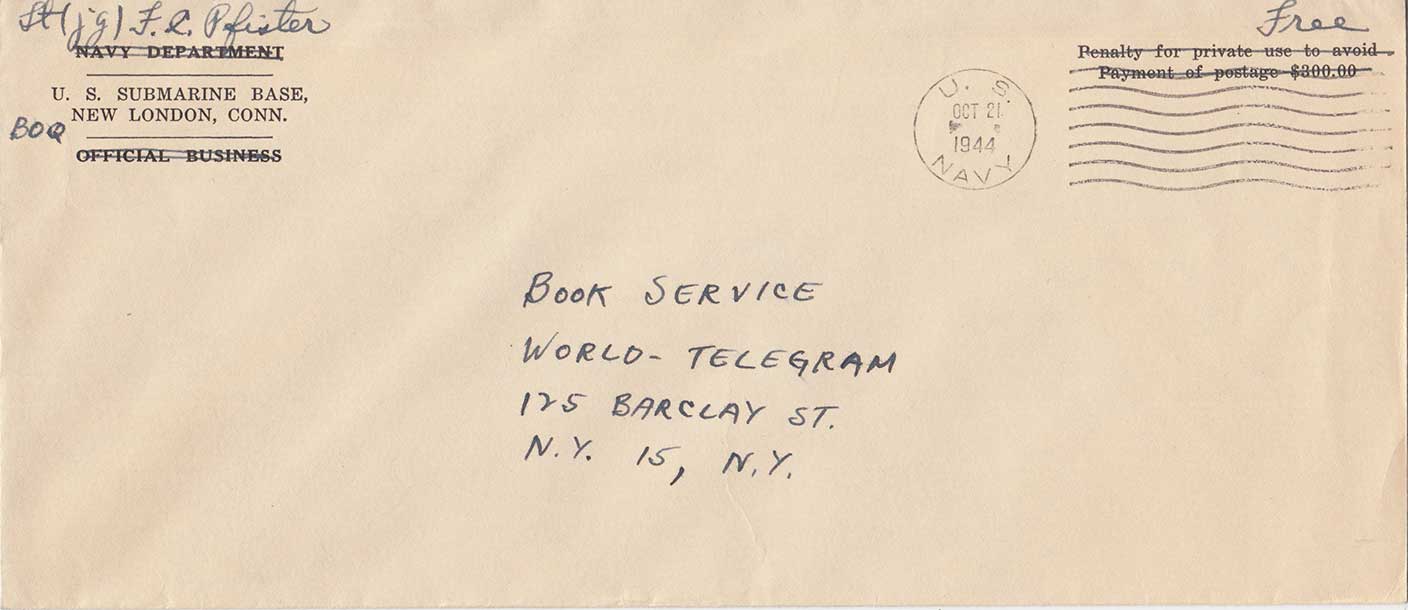 Lt(jg) F. C. Pfister
NAVY DEPARTMENT
U. S. SUBMARINE BASE,
NEW LONDON, CONN.
BOQ
OFFICIAL BUSINESS
Free
Penalty for private use to avoid
Payment of postage $300.00
U. S.
OCT 21
1944
NAVY
BOOK SERVICE
WORLD-TELEGRAM
125 BARCLAY ST.
N.Y. 15, N.Y.